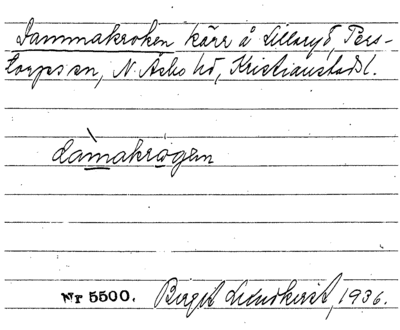 Dammakroken kärr å Lillaryd, Pers-
torps sn, N. Åsbo hd, Kristianstads l.
dàmakrogen
Nr 5500. Birgit Lundkvist, 1936.